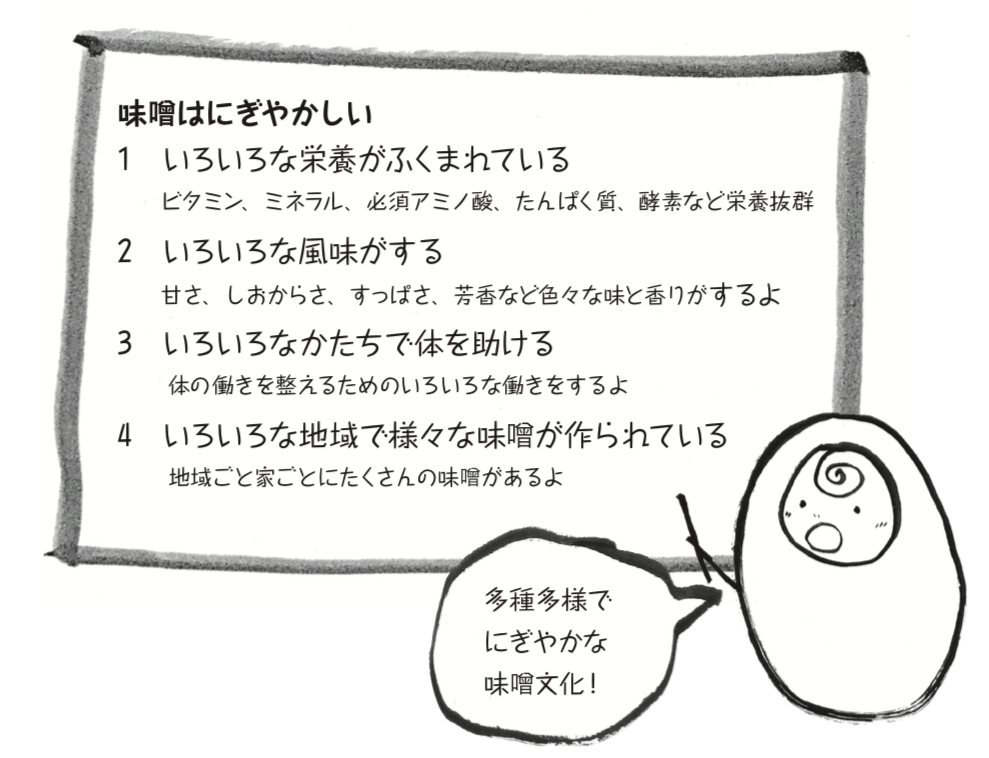 味噌はにぎやかしい
1 いろいろな栄養がふくまれている
ビタミン、ミネラル、必須アミノ酸、たんぱく質、酵素など栄養抜群
2 いろいろな風味がする
甘さ、しおからさ、すっぱさ、芳香など色々な味と香りがするよ
3 いろいろなかたちで体を助ける
体の働きを整えるためのいろいろな働きをするよ
4 いろいろな地域で様々な味噌が作られている
地域ごと家ごとにたくさんの味噌があるよ
多種多様で
にぎやかな
味噌文化!